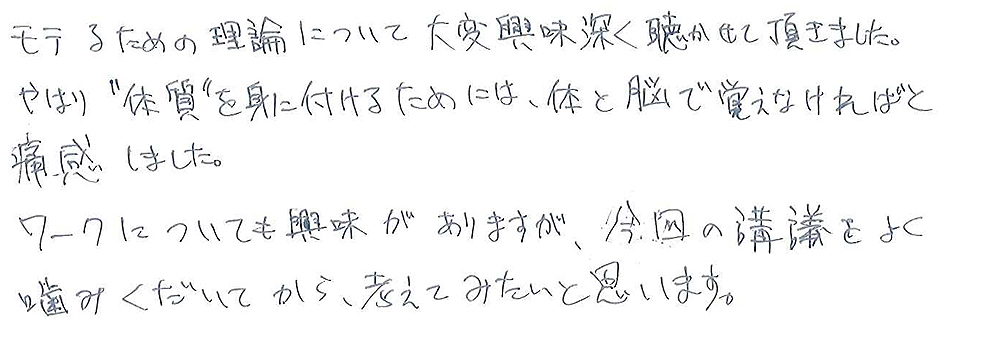 モテるための理論について大変興味深く聴かせて頂きました。
やはり"体質"を身に付けるためには、体と脳で覚えなければと
痛感しました。
ワークについても興味がありますが、今回の講議をよく
噛みくだいてから、考えてみたいと思います。